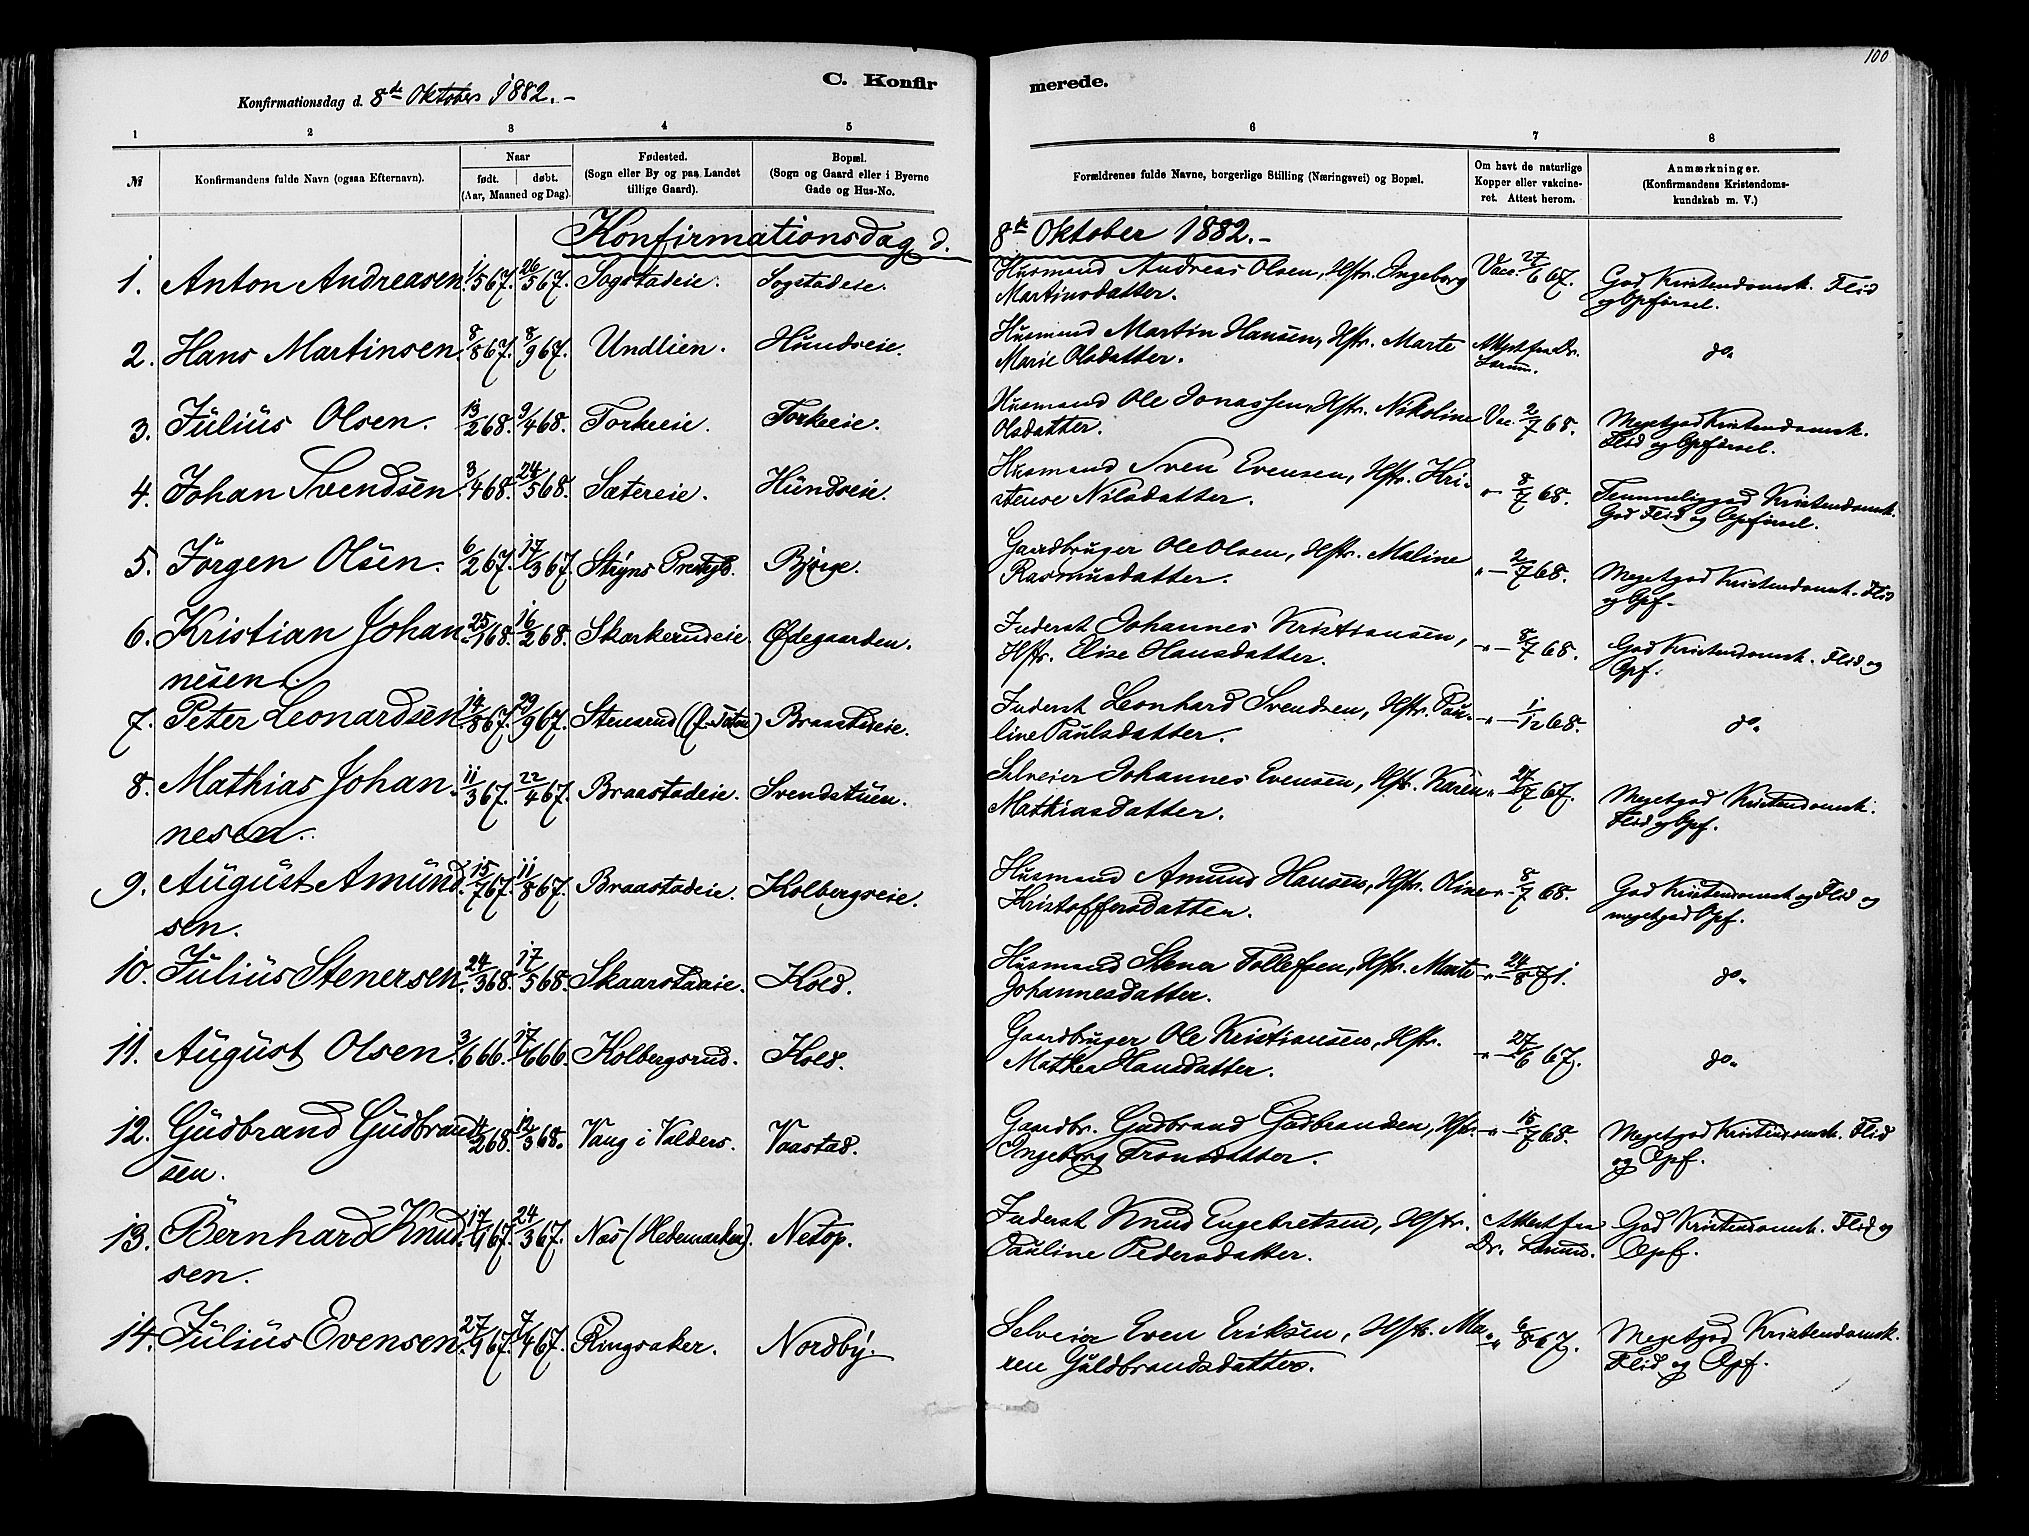 100
C. Konfir merede.
Konfirmationsdag d. 8de Oktober 1882.-
1 2 3 4 5 6 7 8
№ Konfirmandens fulde Navn (ogsaa Efternavn).
Naar
født. døbt.
(Aar, Maaned og Dag).
Fødested.
(Sogn eller By og paa Landet
tillige Gaard).
Bopæl.
(Sogn og Gaard eller i Byerne
Gade og Hus-No.
Forældrenes fulde Navne, borgerlige Stilling (Næringsvei) og Bopæl.
Om havt de naturlige
Kopper eller vakcine-
ret. Attest herom.
Anmærkninger.
(Konfirmandens Kristendoms-
kundskab m. V.)
Konfirmationsdag d. 8de Oktober 1882.-
1. Anton Andreasen. 1/5 67. 26/5 67. Sogstadeie. Sogstadeie. Husmand Andreas Olsen, Hstr. Ingeborg Vacc. 27/6 67. God Kristendomsk. Flid
Martinsdatter. og Opførsel.
2. Hans Martinsen. 8/8 67. 8/9 67. Undlien. Hundseie. Husmand Martin Hansen, Hstr. Marte Attest fra Dr. do.
Marie Olsdatter. Lorum.
3. Julius Olsen. 13/2 68. 9/4 68. Torkeeie. Torkeeie. Husmand Ole Jonassen, Hstr. Nikoline Vac. 2/7 68. Megetgod Kristendomsk.
Olsdatter. Flid og Opførsel.
4. Johan Svendsen. 3/4 68. 24/5 68. Sætereie. Hundseie. Husmand Sven Evensen, Hstr. Kri- „- 8/7 68. Temmeliggod Kristendomsk.
stense Nilsdatter. God Flid og Opførsel.
5. Jørgen Olsen. 6/2 67. 17/3 67. Stryns Prestgjd. Bjørge. Gaardbruger Ole Olsen, Hstr. Maline „- 2/7 68. Megetgod Kristendomsk. Flid
Rasmusdatter. og Opf.
6. Kristian Johan 25/1 68. 16/2 68. Skarkerudeie. Ødegaarden. Inderst Johannes Kristiansen, „- 8/7 68. God Kristendomsk. Flid og
nesen. Hstr. Elise Hansdatter. Opf.
7. Peter Leonardsen. 14/8 67. 29/9 67. Stensrud (Ø. Toten) Braastadeie. Inderst Leonhard Svendsen, Hstr. Pau- „- 1/12 68. do.
line Paulsdatter.
8. Mathias Johan 11/3 67. 22/4 67. Braastadeie. Svendstuen. Selveier Johannes Evensen, Hstr. Karen „- 27/7 67. Megetgod Kristendomsk.
nesen. Mathiasdatter. Flid og Opf.
9. August Amund 15/7 67. 11/8 67. Braastadeie. Kolbergseie. Husmand Amund Hansen, Hstr. Oline „- 8/7 68. God Kristendomsk og Flid og
sen. Kristoffersdatter. megetgod Opf.
10. Julius Stenersen. 24/3 68. 17/5 68. Skaarstadeie. Hold. Husmand Stener Tollefsen, Hstr. Marte „- 24/8 71. do.
Johannesdatter.
11. August Olsen. 3/6 66. 17/6 66. Kolbergsrud. Hold. Gaardbruger Ole Kristiansen, Hstr. „- 27/6 67. do.
Mathea Hansdatter.
12. Gudbrand Gudbrand /2 68. 12/3 68. Vang i Valders. Vaastad. Gaardbr. Gudbrand Gudbrandsen, Hstr. „- 15/7 68. Megetgod Kristendomsk. Flid
sen. Ingeborg Tronsdatter. og Opf.
13. Bernhard Knud 17/1 67. 24/3 67. Nes (Hedemarken). Netop. Inderst Knud Engebretsen, Hstr. Attest fra God Kristendomsk. Flid og
sen. Pauline Pedersdatter. Dr. Lorum. Opf.
14. Julius Evensen. 27/1 67. 7/4 67. Ringsaker. Nordby. Selveier Even Eriksen, Hstr. Ma- „ 6/8 67. Megetgod Kristendomsk.
ren Guldbrandsdatter. Flid og Opf.